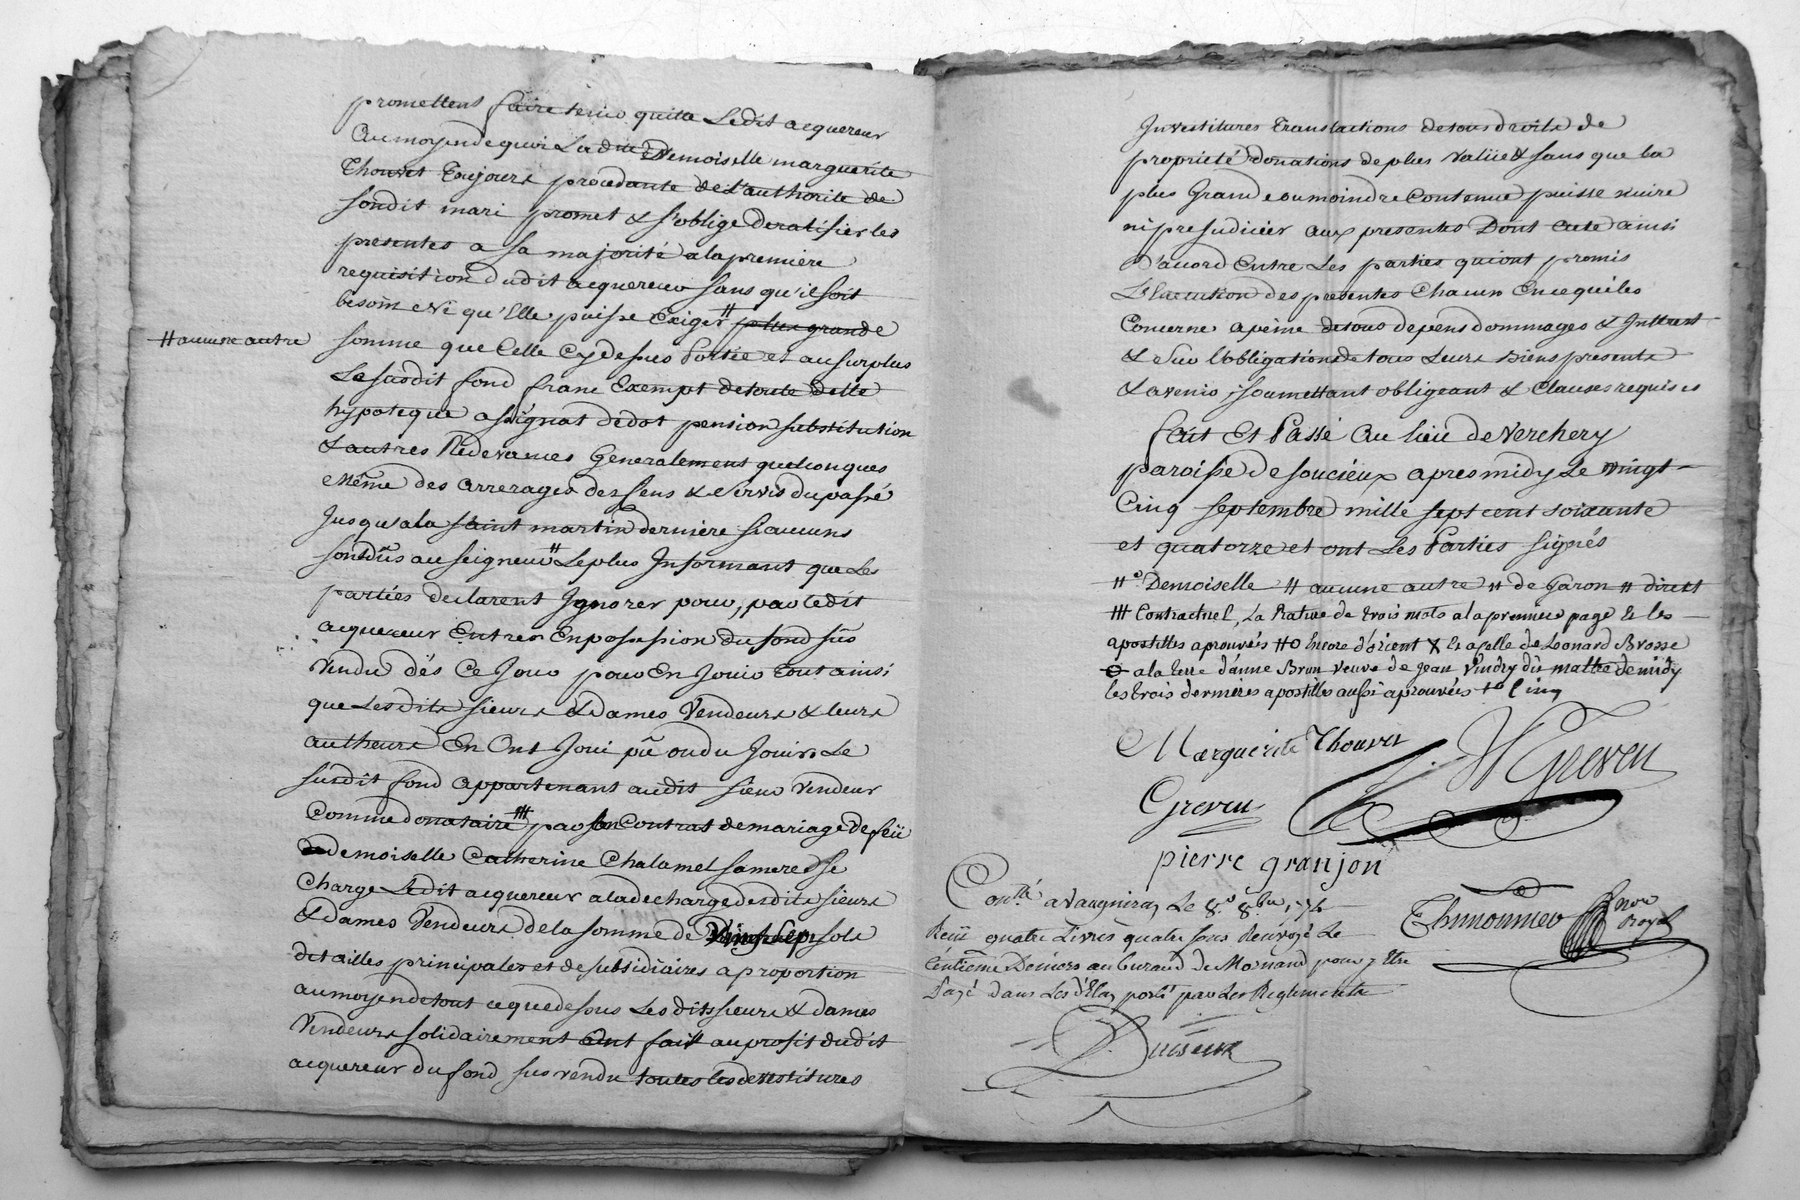 promettent faire tenir quitte Ledit acquereur
Au moyen de quoi Ladite Demoiselle marguerite
Thouvet Toujours procedante de L'authorité de
sondit mari promet & s'oblige de ratifier les
presentes a sa majorité a la premiere
requisition dudit acquereur sans qu'il soit
besoin Ni qu'Elle puisse Exiger # plus grande
# aucune autre
somme que Celle Cy dessus Portée et au surplus
Le susdit fond franc Exempt de toute dette
hypoteque assignat de dot pension substitution
& autres Redevances Generalement quelconques
Même des arrerages des sens & servis du passé
Jusqu'a la saint martin derniere si aucuns
sont dûs au seigneur # Le plus Informant que Les
parties declarent Ignorer pour, par ledit
acquereur Entrer En possession du fond sus
Vendu dès Ce Jour pour En Jouir tout ainsi
que Lesdits sieurs & Dames Vendeurs & leurs
autheurs En Ont Joui pû ou du Jouir Le
susdit fond appartenant audit sieur Vendeur
Comme donataire ### par son Contrat de mariage de feü
demoiselle Catherine Chalamel sa mere se
Charge Ledit acquereur a la decharge desdits sieurs
& Dames Vendeurs de la somme de sols
de tailles principales et de subsidiaires a proportion
au moyen de tout ce que dessus Les dits sieurs & dames
Vendeurs solidairement ont fait au profit dudit
acquereur du fond sus vendu toutes les devestitures
Investitures Translactions de tous droits de
propriété donations de plus Valüe & sans que la
plus Grande ou moindre Contenue puisse nuire
ni prejudicier aux presentes Dont acte ainsi
D'acord Entre Les parties qui ont promis
L'Execution des presentes Chacun En ce qui les
Concerne a peine de tous depens dommages & Intterest
& sur l'obligation de tous Leurs Biens presents
& avenir soumettant obligeant & Clauses requises
fait Et Passé Au lieu de Verchery
paroisse de soucieux apres midy Le vingt
Cinq septembre mille sept cent soixante
et quatorze et ont Les Parties signés
#e Demoiselle # aucune autre # de Garon # direct
### Contractuel, La Rature de trois mots a la premiere page & les
apostilles aprouvées #o Encore d'orient X & celle de Leonard Brosse
o a la terre d'anne Brun veuve de Jean Vindry du matte de midy
les trois dernieres apostilles aussi aprouvées Cinq
Marguerite Thouvet
Greven
Greven
pierre granjon
Con.lé a Vaugneray Le 8.e 8.bre 1774
Reçü quatre Livres quatre sous Renvoyé Le
Centieme Deniers au Bureau de Mornand pour y Etre
Payé dans Les délay porté par Les Reglements
Thimonnier
nore
Royal